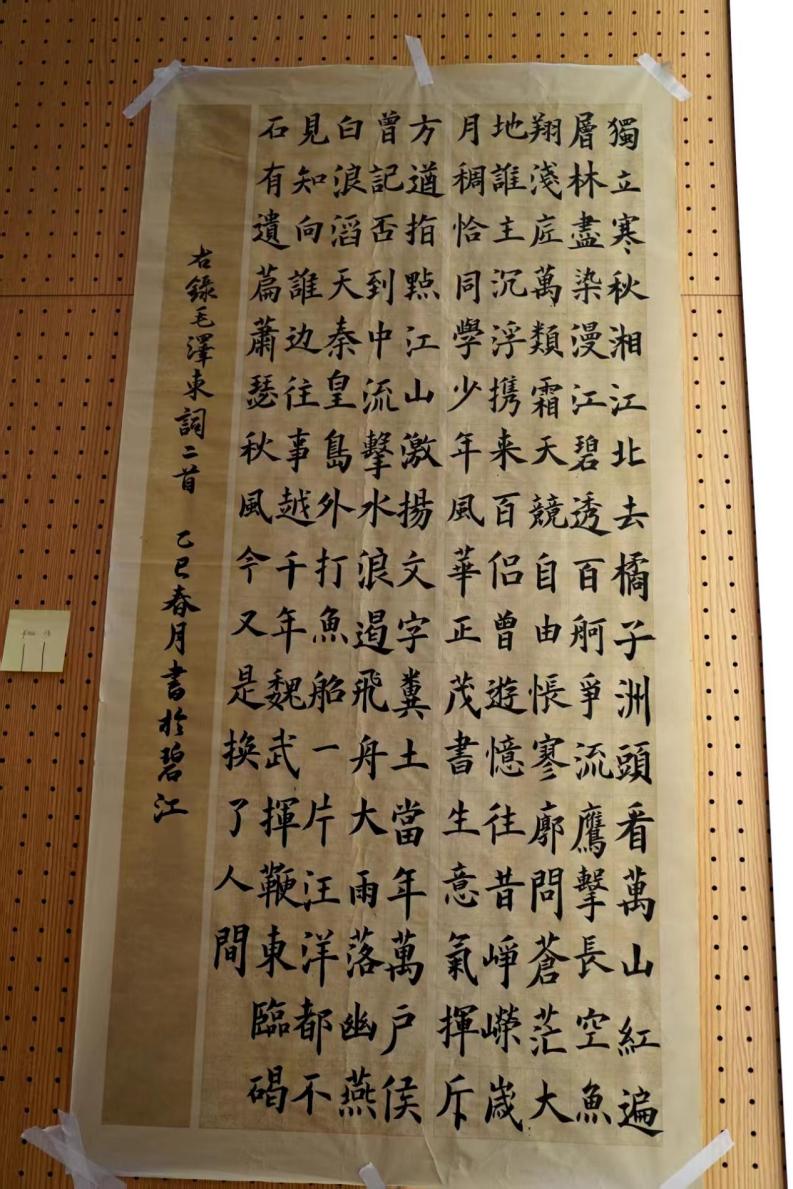 獨立寒秋湘江北去橘子洲頭看萬山紅遍
層林盡染漫江碧透百舸爭流鷹擊長空魚
翔淺底萬類霜天競自由悵寥廓問蒼茫大
地誰主沉浮携来百侣曾遊憶往昔崢嶸歲
月稠恰同學少年風華正茂書生意氣揮斥
方遒指點江山激揚文字糞土當年萬户侯
曾記否到中流擊水浪遏飛舟大雨落幽燕
白浪滔天秦皇島外打魚船一片汪洋都不
見知向誰边往事越千年魏武揮鞭東臨碣
石有遺篇蕭瑟秋風今又是換了人間
右錄毛澤東詞二首 乙巳春月書於碧江